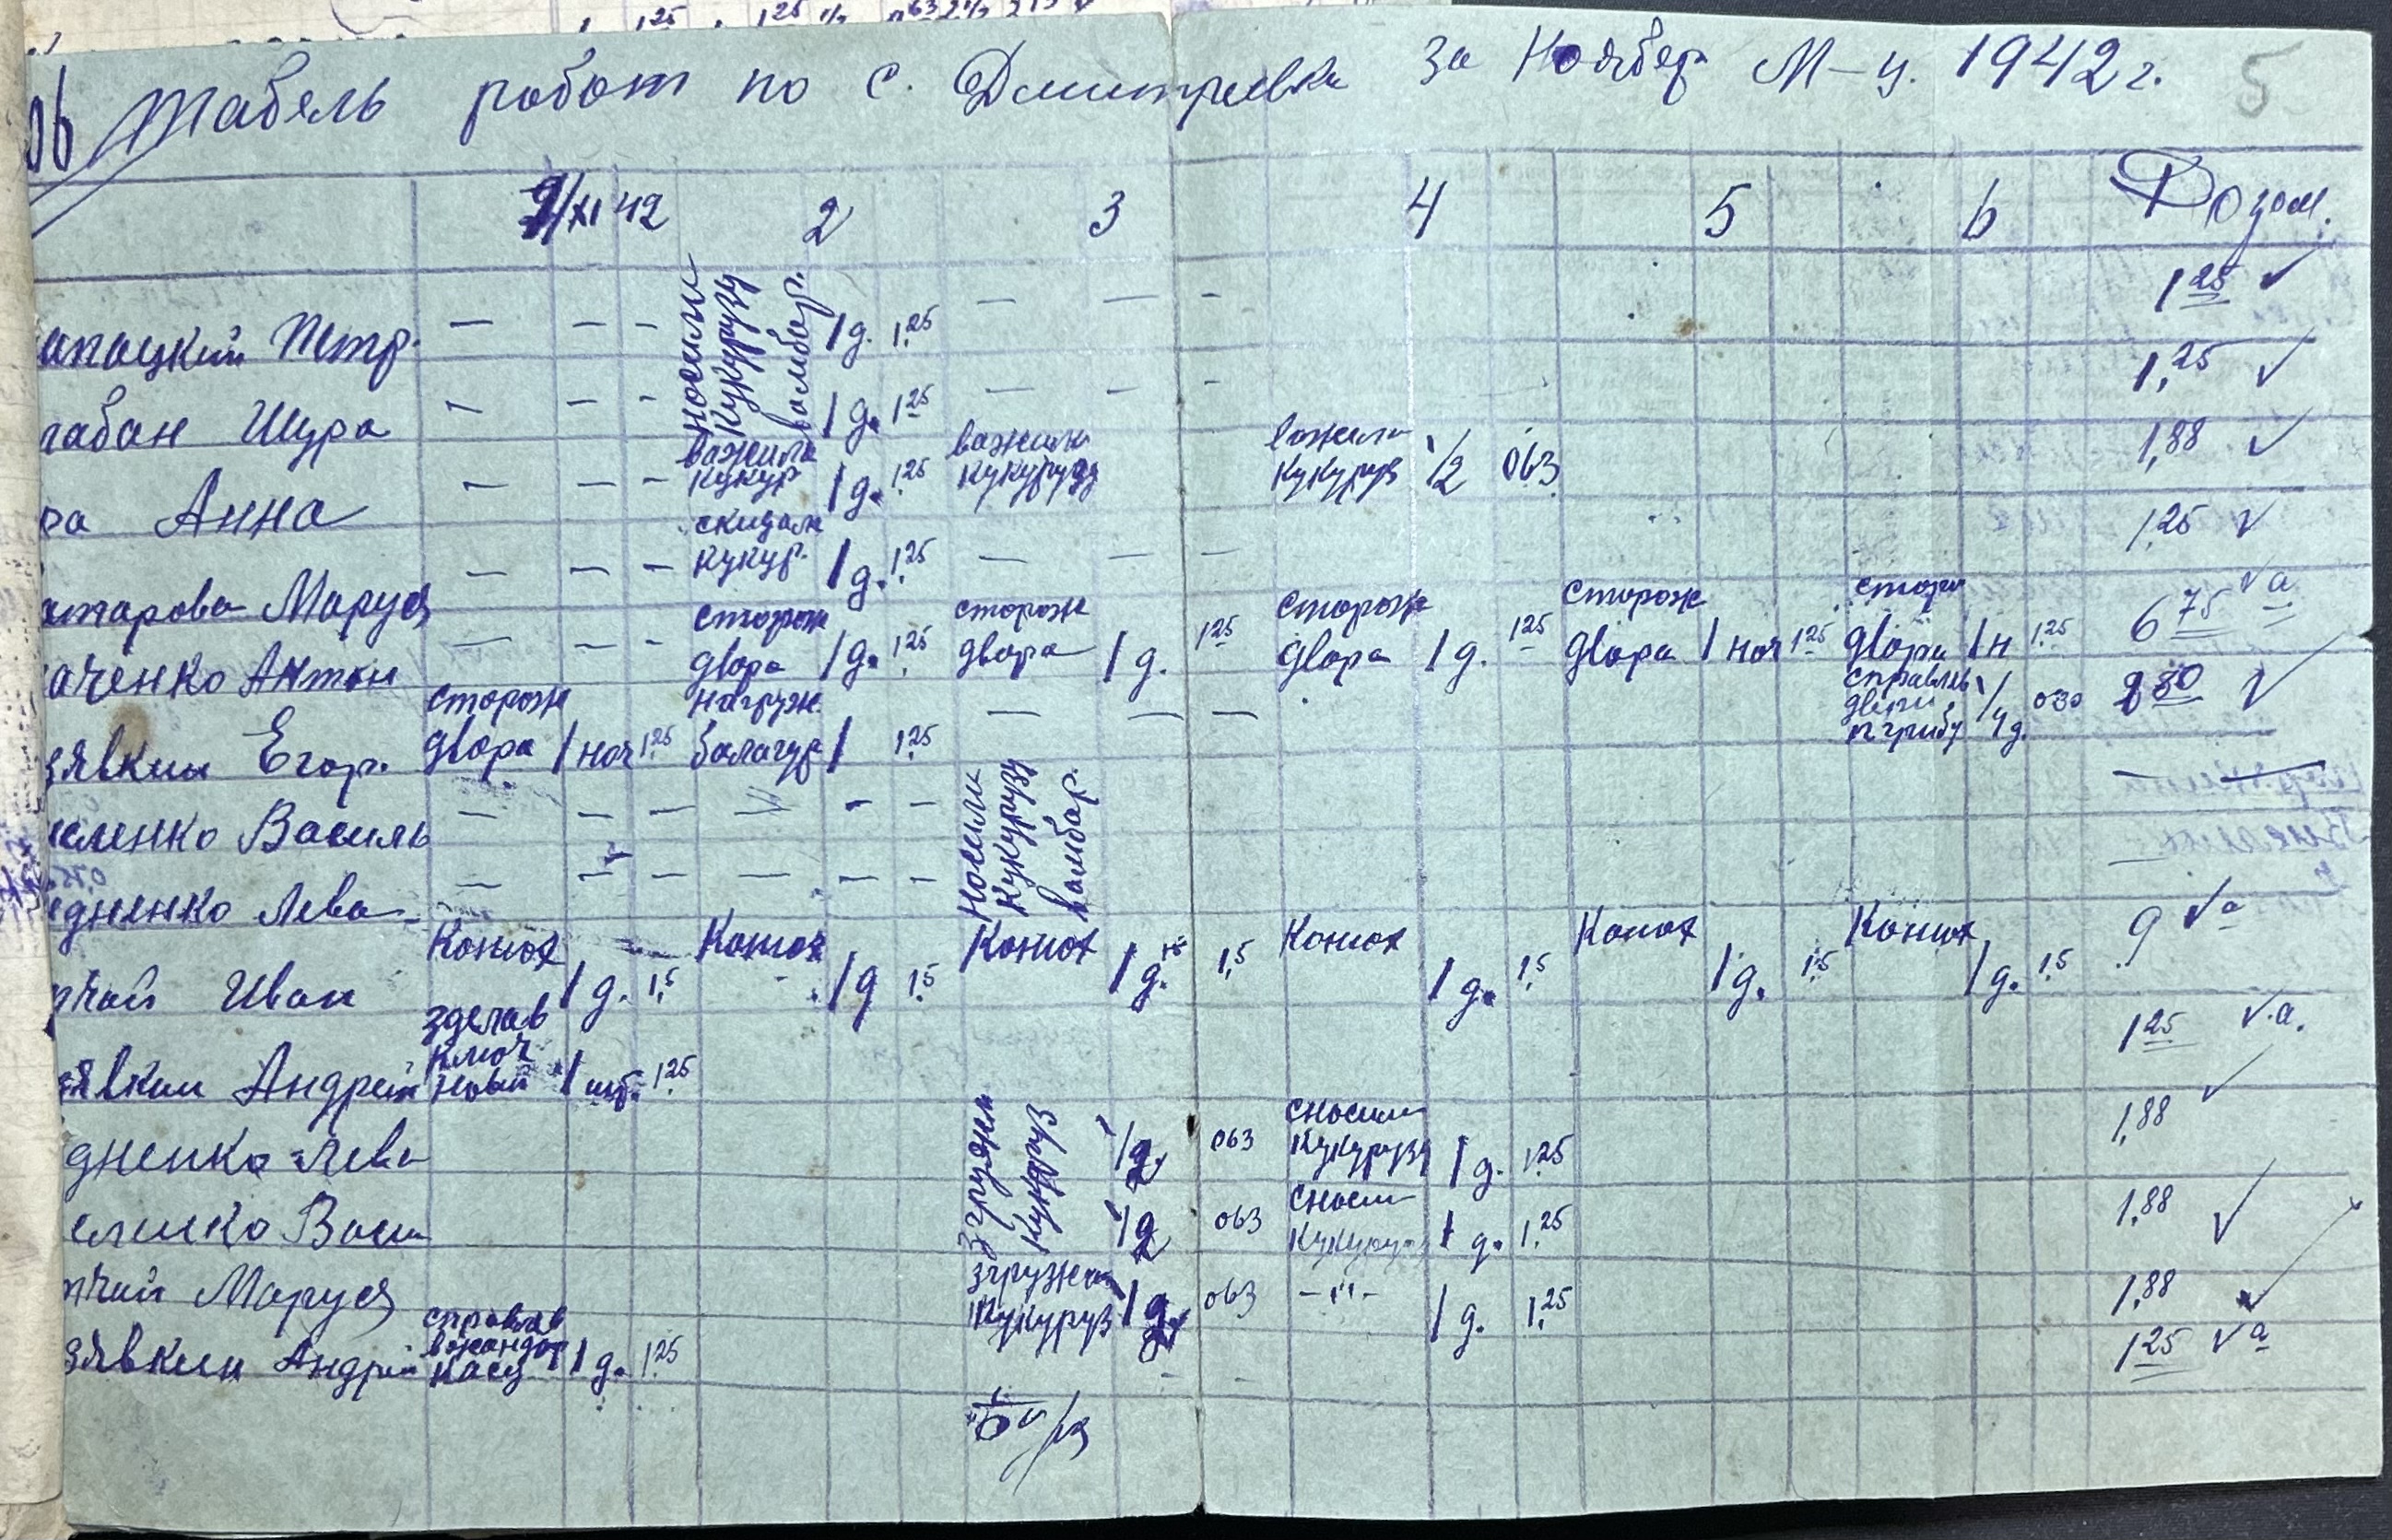 Табель работ по с. Дмитревка за Ноябер М-ц. 1942 г. 5
1/XI 42 2 3 4 5 6
апацкий Петр. — — — носили кукурузу вамбар. 1 д. 1,25 — — - 1 25 ✓
габан Шура — — — 1 д. 1 25 — — - 1,25 ✓
ра Анна — — — важили кукур 1 д. 1 25 важили кукурузу важили кукуруз 1/2 063 1,88 ✓
тарова Маруся — — — скидали кукур. 1 д. 1 25 — — — 1,25 ✓
аченко Антон — — - сторож двора 1 д. 1 25 сторож двора 1 д. 1 25 сторож двора 1 д. 1 25 сторож двора 1 ноч 1 25 сторж двора 1 н 1,25 6 75 ✓ а
зявкин Егор. сторож двора 1 ноч 1 25 нагруж. 1 1 25 — — — справляв двери 1/4 д. 030 2 80 ✓
Василь — — — — — —
едненко Лева — — — — — — Носили Кукурузу вамбар. —
рчай Иван Конюх 1 д. 1,5 Конюх 1 д 1,5 Конюх 1 д. 1,5 Конюх 1 д. 1,5 Конюх 1 д. 1,5 Конюх 1 д. 1,5 9 ✓ а
зявкин Андрей зделав ключ новый 1 шт. 1 25 1 25 ✓.а.
дненко Лева згружали кукуруз 1/2 063 сносили кукурузу 1 д. 1 25 1,88 ✓
1/2 063 сносили 1 д. 1,25 1,88 ✓
Маруся згружали Кукуруз 063 -"- 1 д. 1,25 1,88 ✓
зявкин Андрій справляв касу 1 д. 1 25 1 25 ✓ а